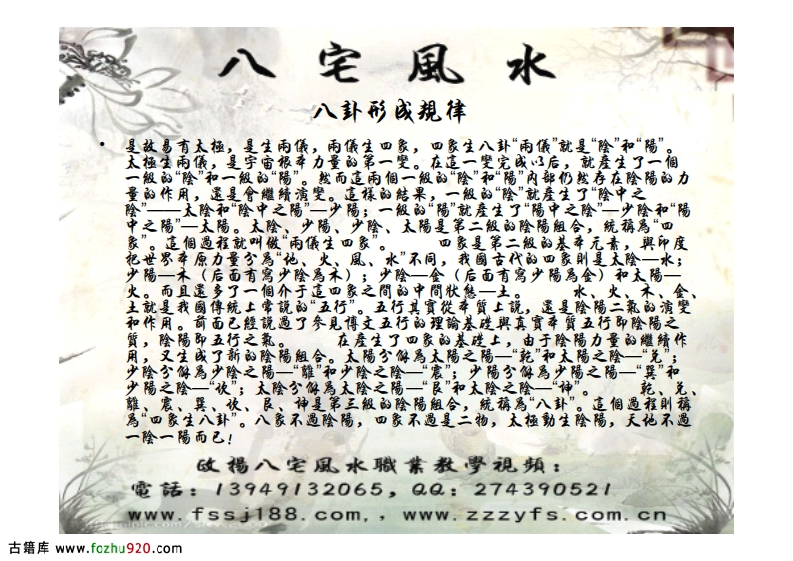 八宅風水
八卦形成規律
• 是故易有太極，是生兩儀，兩儀生四象，四象生八卦“兩儀”就是“陰”和“陽”。
太極生兩儀，是宇宙根本力量的第一變。在這一變完成以后，就產生了一個
一級的“陰”和一級的“陽”。然而這兩個一級的“陰”和“陽”內部仍然存在陰陽的力
量的作用，還是會繼續演變。這樣的結果，一級的“陰”就產生了“陰中之
陰”——太陰和“陰中之陽”—少陽；一級的“陽”就產生了“陽中之陰”—少陰和“陽
中之陽”—太陽。太陰、少陽、少陰、太陽是第二級的陰陽組合，統稱爲“四
象”。這個過程就叫做“兩儀生四象”。 四象是第二級的基本元素，與印度
把世界本原力量分爲“地、火、風、水”不同，我國古代的四象則是太陰—水；
少陽—木（后面有寫少陰爲木）；少陰—金（后面有寫少陽爲金）和太陽—
火。而且還多了一個介于這四象之間的中間狀態—土。 水、火、木、金、
土就是我國傳統上常說的“五行”。五行其實從本質上説，還是陰陽二氣的演變
和作用。前面已經説過了參見博文五行的理論基礎與真實本質五行即陰陽之
質，陰陽即五行之氣。 在產生了四象的基礎上，由于陰陽力量的繼續作
用，又生成了新的陰陽組合。太陽分解爲太陽之陽—“乾”和太陽之陰—“兌”；
少陰分解爲少陰之陽—“離”和少陰之陰—“震”；少陽分解爲少陽之陽—“巽”和
少陽之陰—“坎”；太陰分解爲太陰之陽—“艮”和太陰之陰—“坤”。 乾、兌、
離、震、巽、坎、艮、坤是第三級的陰陽組合，統稱爲“八卦”。這個過程則稱
爲“四象生八卦”。八象不過陰陽，四象不過是二物，太極動生陰陽，天地不過
一陰一陽而已！
啟揚八宅風水職業教學視頻：
電話：13949132065，QQ：274390521
www.fssj188.com,，www.zzzyfs.com.cn
古籍库 www.fozhu920.com